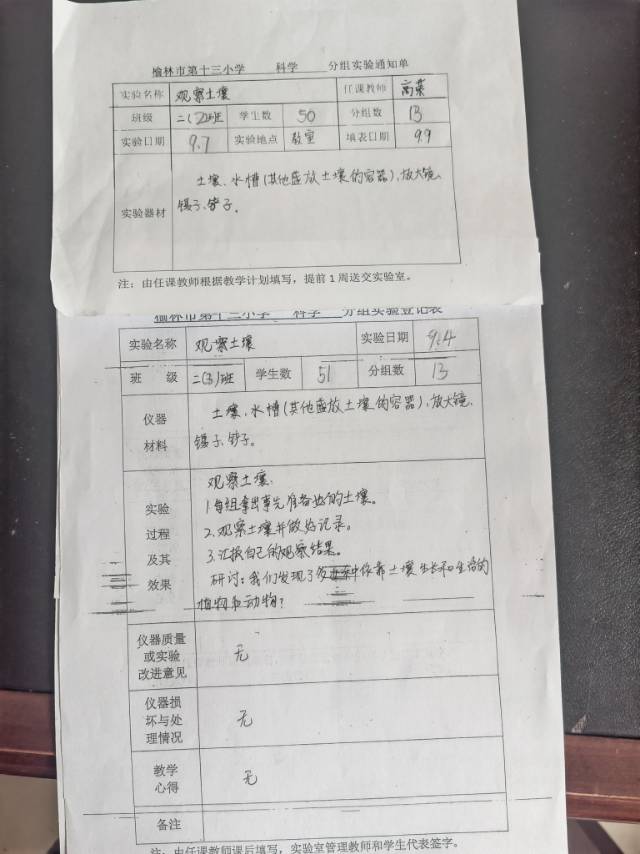 榆林市第十三小学 科学 分组实验通知单
实验名称 观察土壤 任课教师 高荣
班级 二(2)班 学生数 50 分组数 13
实验日期 9.7 实验地点 教室 填表日期 9.9
实验器材 土壤、水槽(其他盛放土壤的容器),放大镜、
镊子、铲子。
注:由任课教师根据教学计划填写,提前1周送交实验室。
榆林市第十三小学 科学 分组实验登记表
实验名称 观察土壤 实验日期 9.4
班 级 二(3)班 学生数 51 分组数 13
仪器
材料
土壤、水槽(其他盛放土壤的容器),放大镜、
镊子、铲子。
实验
过程
及其
效果
观察土壤:
1.每组拿出事先准备好的土壤。
2.观察土壤并做好记录。
3.汇报自己的观察结果。
研讨:我们发现了 依靠土壤生长和生活的
植物和动物?
仪器质量
或实验
改进意见
无
仪器损
坏与处
理情况
无
教学
心得
无
备注
注:由任课教师课后填写,实验室管理教师和学生代表签字。